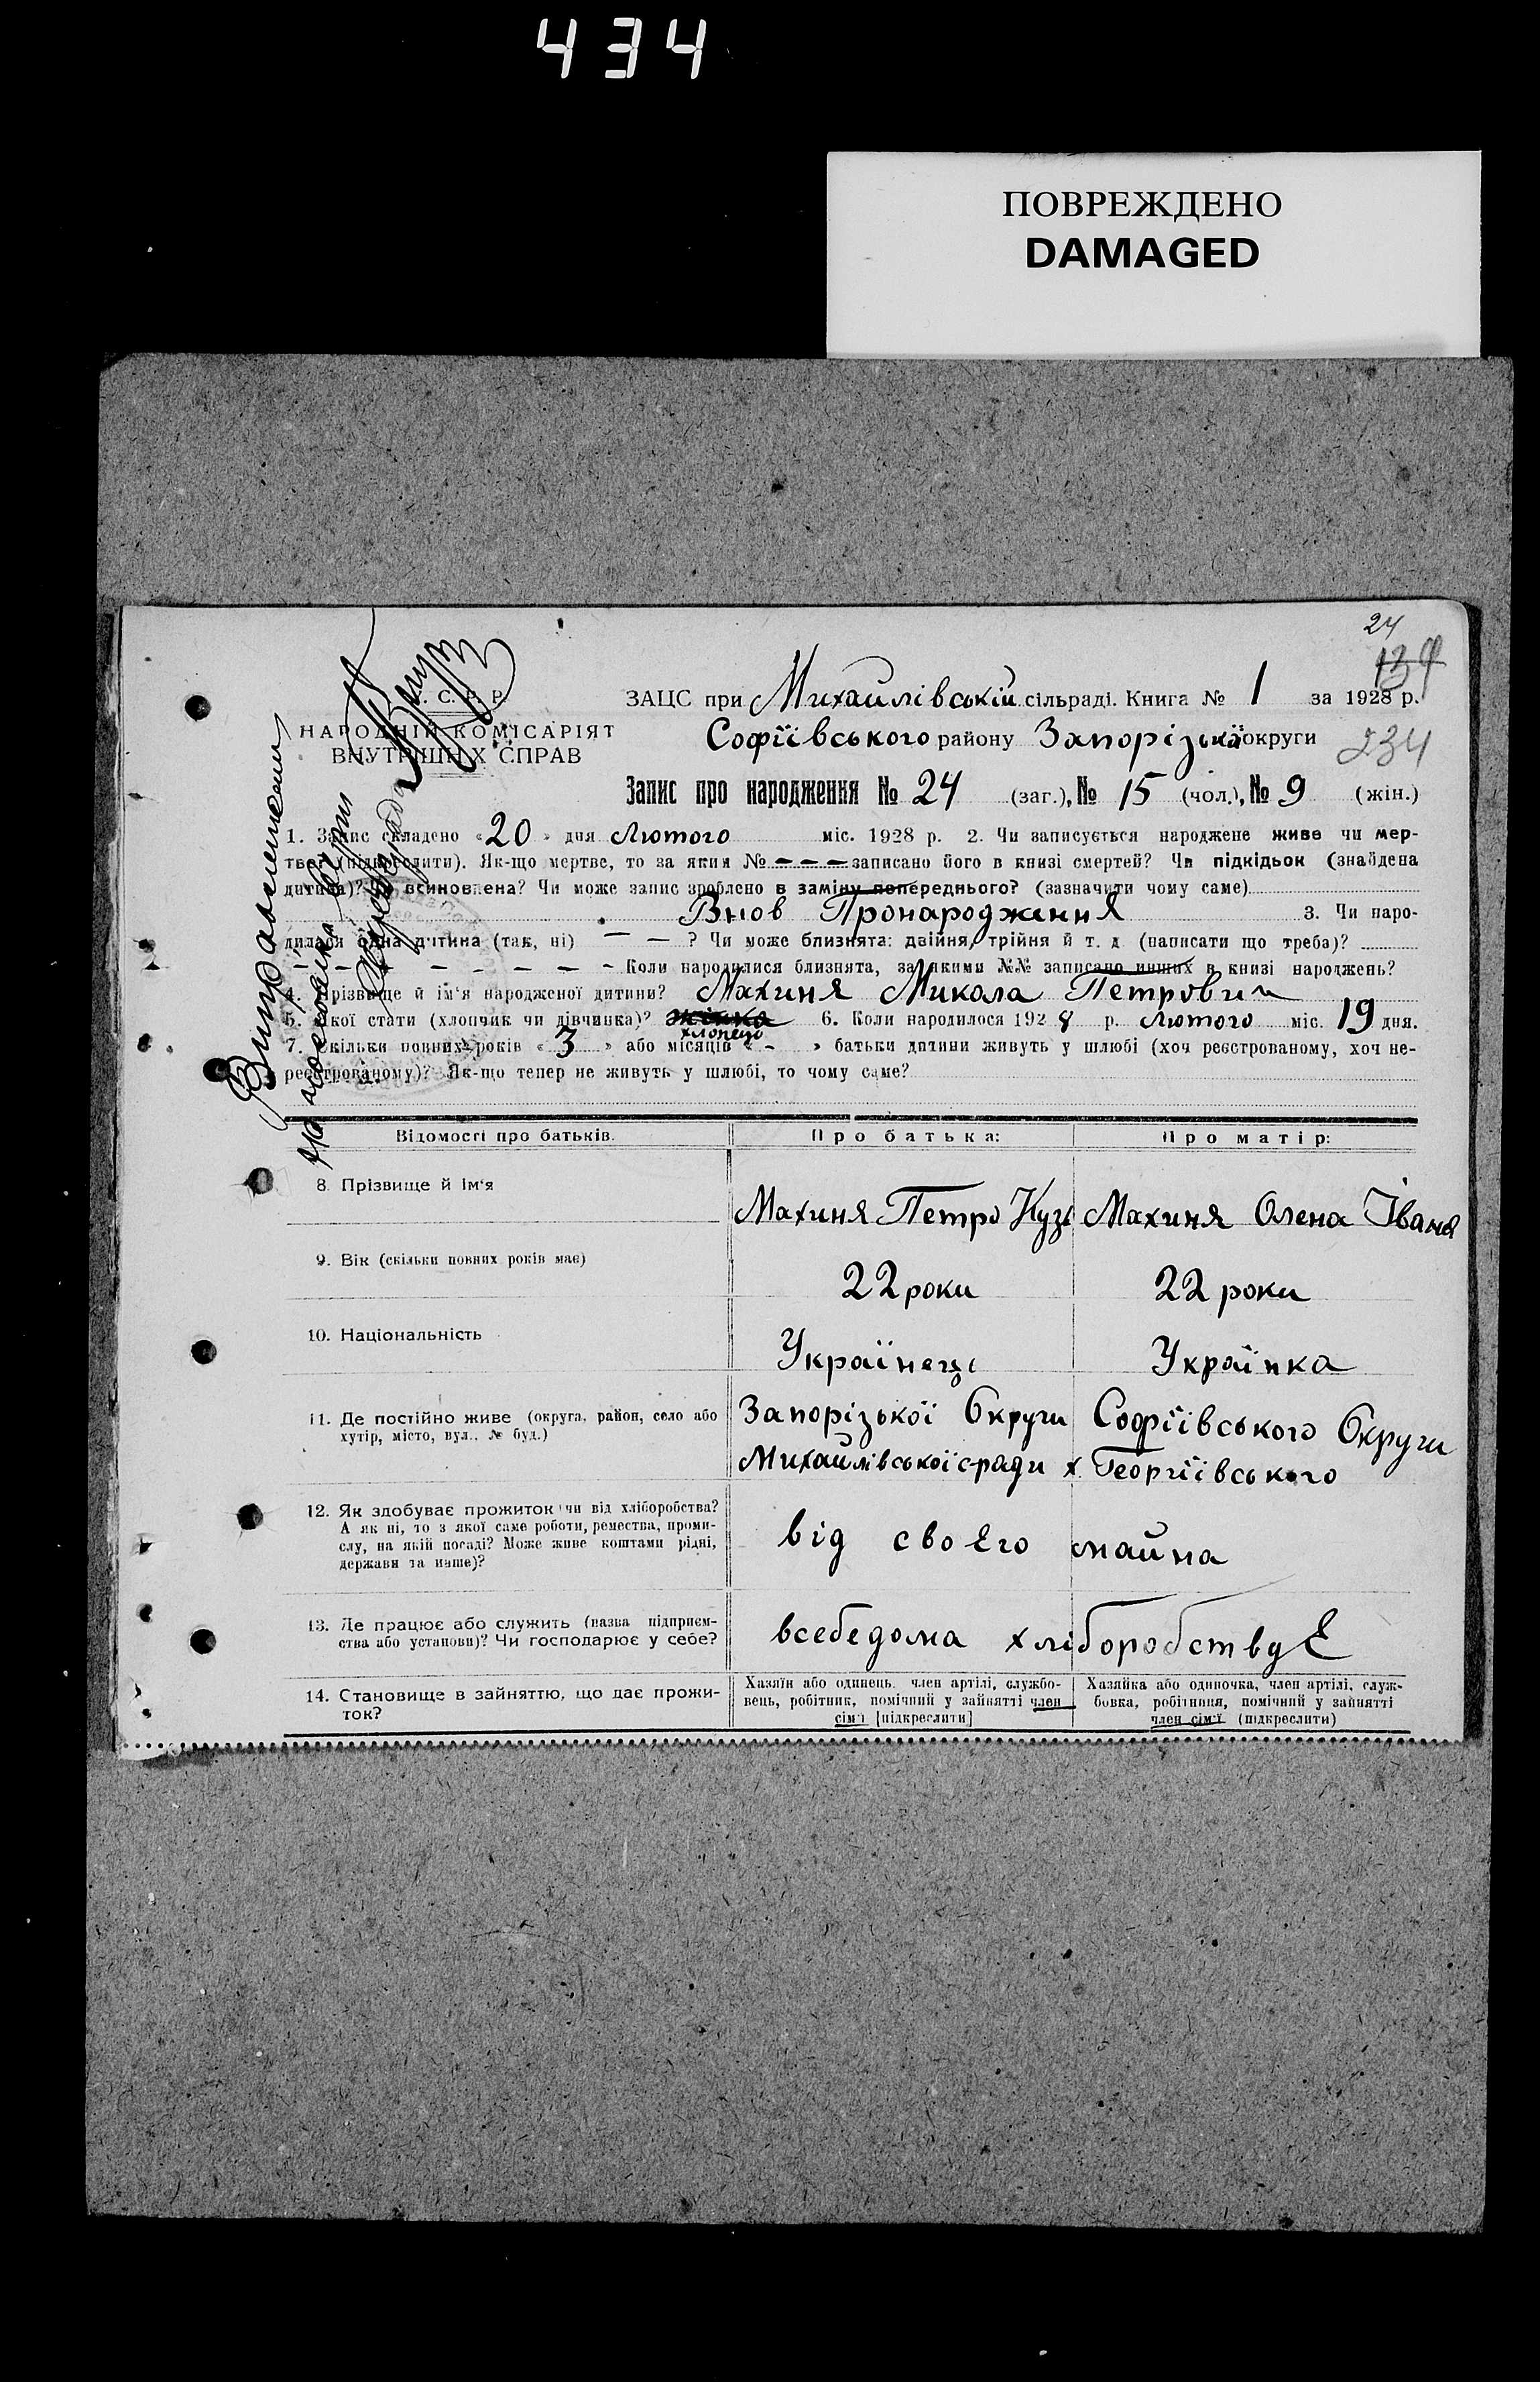 434
ПОВРЕЖДЕНО
DAMAGED
24
134
234
С. Р. Р.
НАРОДНІЙ КОМІСАРІЯТ
ВНУТРІШНІХ СПРАВ
ЗАЦС при Михайлівській сільраді. Книга № 1 за 1928 р.
Софіївського району Запорізької округи
Запис про народження № 24 (заг.), № 15 (чол.), № 9 (жін.)
1. Запис складено «20» дня Лютого міс. 1928 р. 2. Чи записується народжене живе чи мер-
тве? (підкреслити). Як-що мертве, то за яким № – – – записано його в книзі смертей? Чи підкідьок (знайдена
дитина)? Чи всиновлена? Чи може запис зроблено в заміну попереднього? (зазначити чому саме)
Внов Пронародження 3. Чи наро-
дилася одна дитина (так, ні) — — ? Чи може близнята: двійня, трійня й т. д (написати що треба)?
– – – – – – – – Коли народилися близнята, за якими №№ записано инших в книзі народжень?
4. Прізвище й ім'я народженої дитини? Махиня Микола Петрович
5. Якої стати (хлопчик чи дівчинка)? жінка хлопець 6. Коли народилося 1928 р. Лютого міс. 19 дня.
7. Скільки повних років «3» або місяців «-» батьки дитини живуть у шлюбі (хоч реєстрованому, хоч не-
реєстрованому)? Як-що тепер не живуть у шлюбі, то чому саме?
Відомості про батьків. Про батька: Про матір:
8. Прізвище й ім'я
Махиня Петро Кузь Махиня Олена Іване
9. Вік (скільки повних років має)
22 роки 22 роки
10. Національність
Українець Українка
11. Де постійно живе (округа, район, село або
хутір, місто, вул., № буд.)
Запорізької Округи Софіївського Округи
Михайлівської с-ради х. Георгіївського
12. Як здобуває прожиток чи від хліборобства?
А як ні, то з якої саме роботи, ремества, проми-
слу, на якій посаді? Може живе коштами рідні,
держави та инше)?
від своЕго майна
13. Де працює або служить (назва підприєм-
ства або установи)? Чи господарює у себе?
всебедома хліборобствуЕ
14. Становище в зайняттю, що дає прожи-
ток?
Хазяїн або одинець, член артілі, службо-
вець, робітник, помічний у зайнятті член
сім'ї [підкреслити]
Хазяйка або одиночка, член артілі, служ-
бовка, робітниця, помічний у зайнятті
член сім'ї (підкреслити)